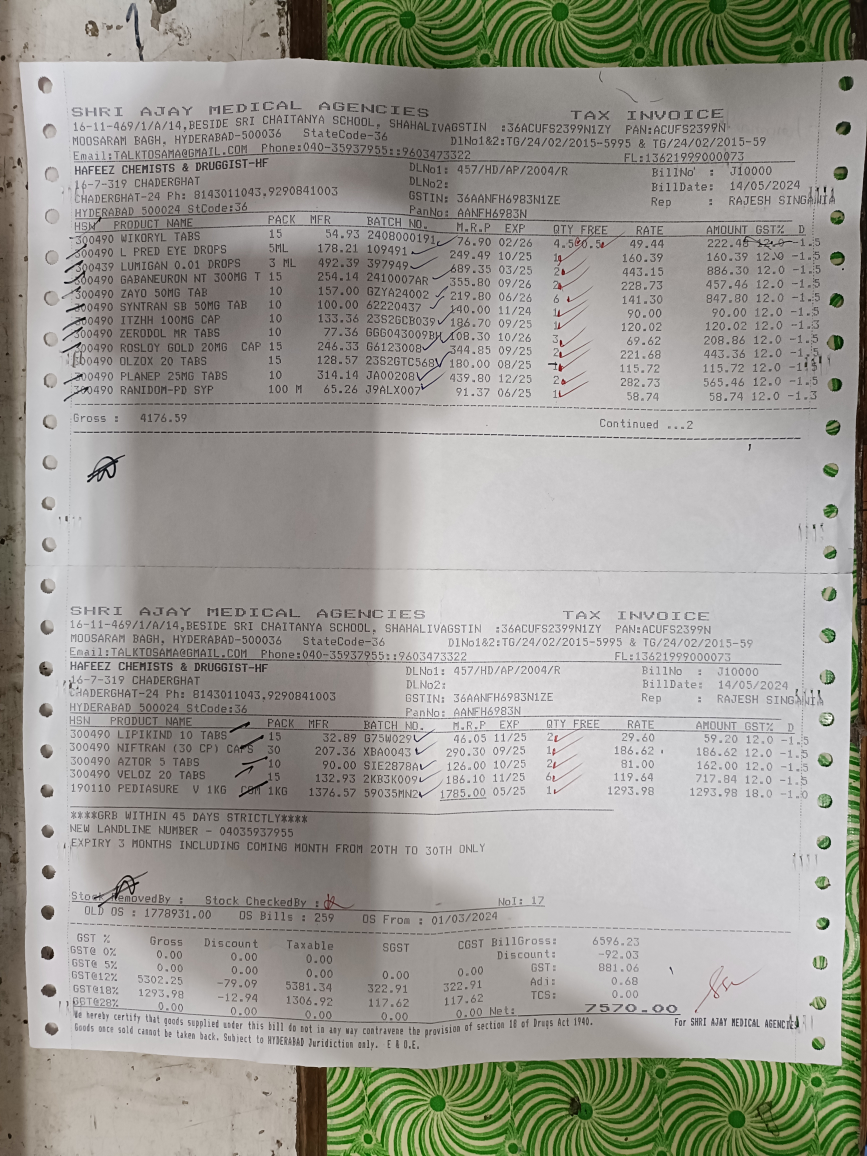 SHRI AJAY MEDICAL AGENCIES TAX INVOICE
16-11-469/1/A/14,BESIDE SRI CHAITANYA SCHOOL, SHAHALIVAGSTIN :36ACUFS2399N1ZY PAN:ACUFS2399N
MOOSARAM BAGH, HYDERABAD-500036 StateCode-36 DlNo1&2:TG/24/02/2015-5995 & TG/24/02/2015-59
Email:TALKTOSAMA@GMAIL.COM Phone:040-35937955::9603473322 FL:13621999000073
HAFEEZ CHEMISTS & DRUGGIST-HF DLNo1: 457/HD/AP/2004/R BillNo : J10000
16-7-319 CHADERGHAT DLNo2: BillDate: 14/05/2024
CHADERGHAT-24 Ph: 8143011043,9290841003 GSTIN: 36AANFH6983N1ZE Rep : RAJESH SINGANIA
HYDERABAD 500024 StCode:36 PanNo: AANFH6983N
HSN PRODUCT NAME PACK MFR BATCH NO. M.R.P EXP QTY FREE RATE AMOUNT GST% D
300490 WIKORYL TABS 15 54.93 2408000191 76.90 02/26 4.5 0.5 49.44 222.48 12.0 -1.5
300490 L PRED EYE DROPS 5ML 178.21 109491 249.49 10/25 1 160.39 160.39 12.0 -1.5
300439 LUMIGAN 0.01 DROPS 3 ML 492.39 397949 689.35 03/25 2 443.15 886.30 12.0 -1.5
300490 GABANEURON NT 300MG T 15 254.14 2410007AR 355.80 09/26 2 228.73 457.46 12.0 -1.5
300490 ZAYO 50MG TAB 10 157.00 GZYA24002 219.80 06/26 6 141.30 847.80 12.0 -1.5
300490 SYNTRAN SB 50MG TAB 10 100.00 62220437 140.00 11/24 1 90.00 90.00 12.0 -1.5
300490 ITZHH 100MG CAP 10 133.36 23S2GCB039 186.70 09/25 1 120.02 120.02 12.0 -1.3
300490 ZERODOL MR TABS 10 77.36 GGG043009BH 108.30 10/26 3 69.62 208.86 12.0 -1.5
300490 ROSLOY GOLD 20MG CAP 15 246.33 G6123008 344.85 09/25 2 221.68 443.36 12.0 -1.5
300490 OLZOX 20 TABS 15 128.57 23S2GTC568 180.00 08/25 1 115.72 115.72 12.0 -1.5
300490 PLANEP 25MG TABS 10 314.14 JA00208 439.80 12/25 2 282.73 565.46 12.0 -1.5
300490 RANIDOM-PD SYP 100 M 65.26 J9ALX007 91.37 06/25 1 58.74 58.74 12.0 -1.3
Gross : 4176.59 Continued ...2
SHRI AJAY MEDICAL AGENCIES TAX INVOICE
16-11-469/1/A/14,BESIDE SRI CHAITANYA SCHOOL, SHAHALIVAGSTIN :36ACUFS2399N1ZY PAN:ACUFS2399N
MOOSARAM BAGH, HYDERABAD-500036 StateCode-36 DlNo1&2:TG/24/02/2015-5995 & TG/24/02/2015-59
Email:TALKTOSAMA@GMAIL.COM Phone:040-35937955::9603473322 FL:13621999000073
HAFEEZ CHEMISTS & DRUGGIST-HF DLNo1: 457/HD/AP/2004/R BillNo : J10000
16-7-319 CHADERGHAT DLNo2: BillDate: 14/05/2024
CHADERGHAT-24 Ph: 8143011043,9290841003 GSTIN: 36AANFH6983N1ZE Rep : RAJESH SINGANIA
HYDERABAD 500024 StCode:36 PanNo: AANFH6983N
HSN PRODUCT NAME PACK MFR BATCH NO. M.R.P EXP QTY FREE RATE AMOUNT GST% D
300490 LIPIKIND 10 TABS 15 32.89 G75W029 46.05 11/25 2 29.60 59.20 12.0 -1.5
300490 NIFTRAN (30 CP) CAPS 30 207.36 XBA0043 290.30 09/25 1 186.62 186.62 12.0 -1.5
300490 AZTOR 5 TABS 10 90.00 SIE2878A 126.00 10/25 2 81.00 162.00 12.0 -1.5
300490 VELOZ 20 TABS 15 132.93 2KB3K009 186.10 11/25 6 119.64 717.84 12.0 -1.5
190110 PEDIASURE V 1KG 1KG 1376.57 59035MN2 1785.00 05/25 1 1293.98 1293.98 18.0 -1.0
****GRB WITHIN 45 DAYS STRICTLY****
NEW LANDLINE NUMBER - 04035937955
EXPIRY 3 MONTHS INCLUDING COMING MONTH FROM 20TH TO 30TH ONLY
Stock RemovedBy : Stock CheckedBy : NoI: 17
OLD OS : 1778931.00 OS Bills : 259 OS From : 01/03/2024
GST % Gross Discount Taxable SGST CGST BillGross: 6596.23
GST@ 0% 0.00 0.00 0.00 Discount: -92.03
GST@ 5% 0.00 0.00 0.00 0.00 0.00 GST: 881.06
GST@12% 5302.25 -79.09 5381.34 322.91 322.91 Adj: 0.68
GST@18% 1293.98 -12.94 1306.92 117.62 117.62 TCS: 0.00
GST@28% 0.00 0.00 0.00 0.00 0.00 Net: 7570.00
We hereby certify that goods supplied under this bill do not in any way contravene the provision of section 18 of Drugs Act 1940. For SHRI AJAY MEDICAL AGENCIES
Goods once sold cannot be taken back. Subject to HYDERABAD Juridiction only. E & O.E.